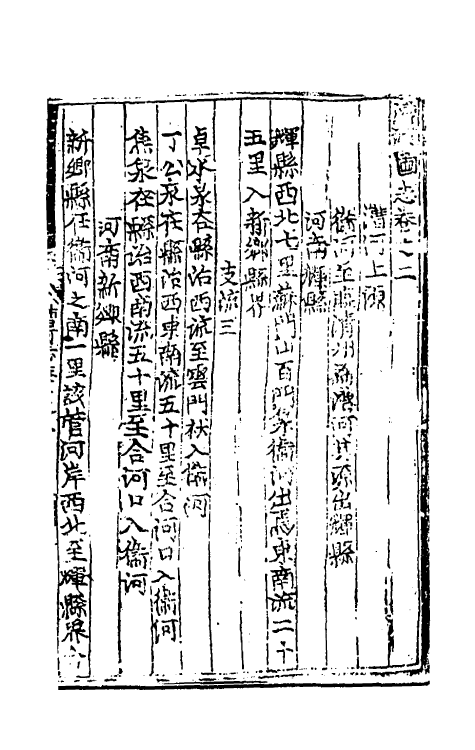 漕河圖志卷之二
漕河上源
衛河至臨清州為漕河其源出輝縣
河南輝縣
輝縣西北七里蘇門山百門泉衛河出焉東南流二十
五里入新鄉縣界
支流三
卓水泉在縣治西流至雲門村入衛河
丁公泉在縣治西東南流五十里至合河口入衛河
焦泉在縣治西南流五十里至合河口入衛河
河南新鄉縣
新鄉縣在衛河之南一里該管河岸西北至輝縣界合